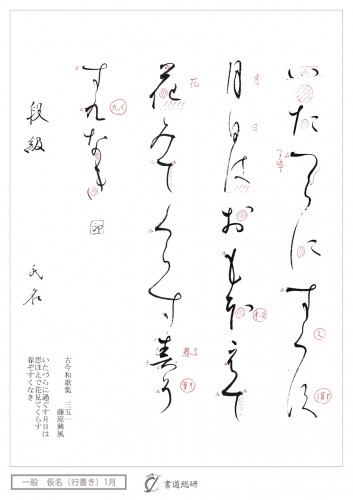 いたつらにす久須
月日はおもほえて
花みてくらす春曽
す九なき
印
段級
氏名
古今和歌集　三五一
藤原興風
いたづらに過ぐす月日は
思ほえで花見てくらす
春ぞすくなき
一般　仮名（行書き）1月
書道総研